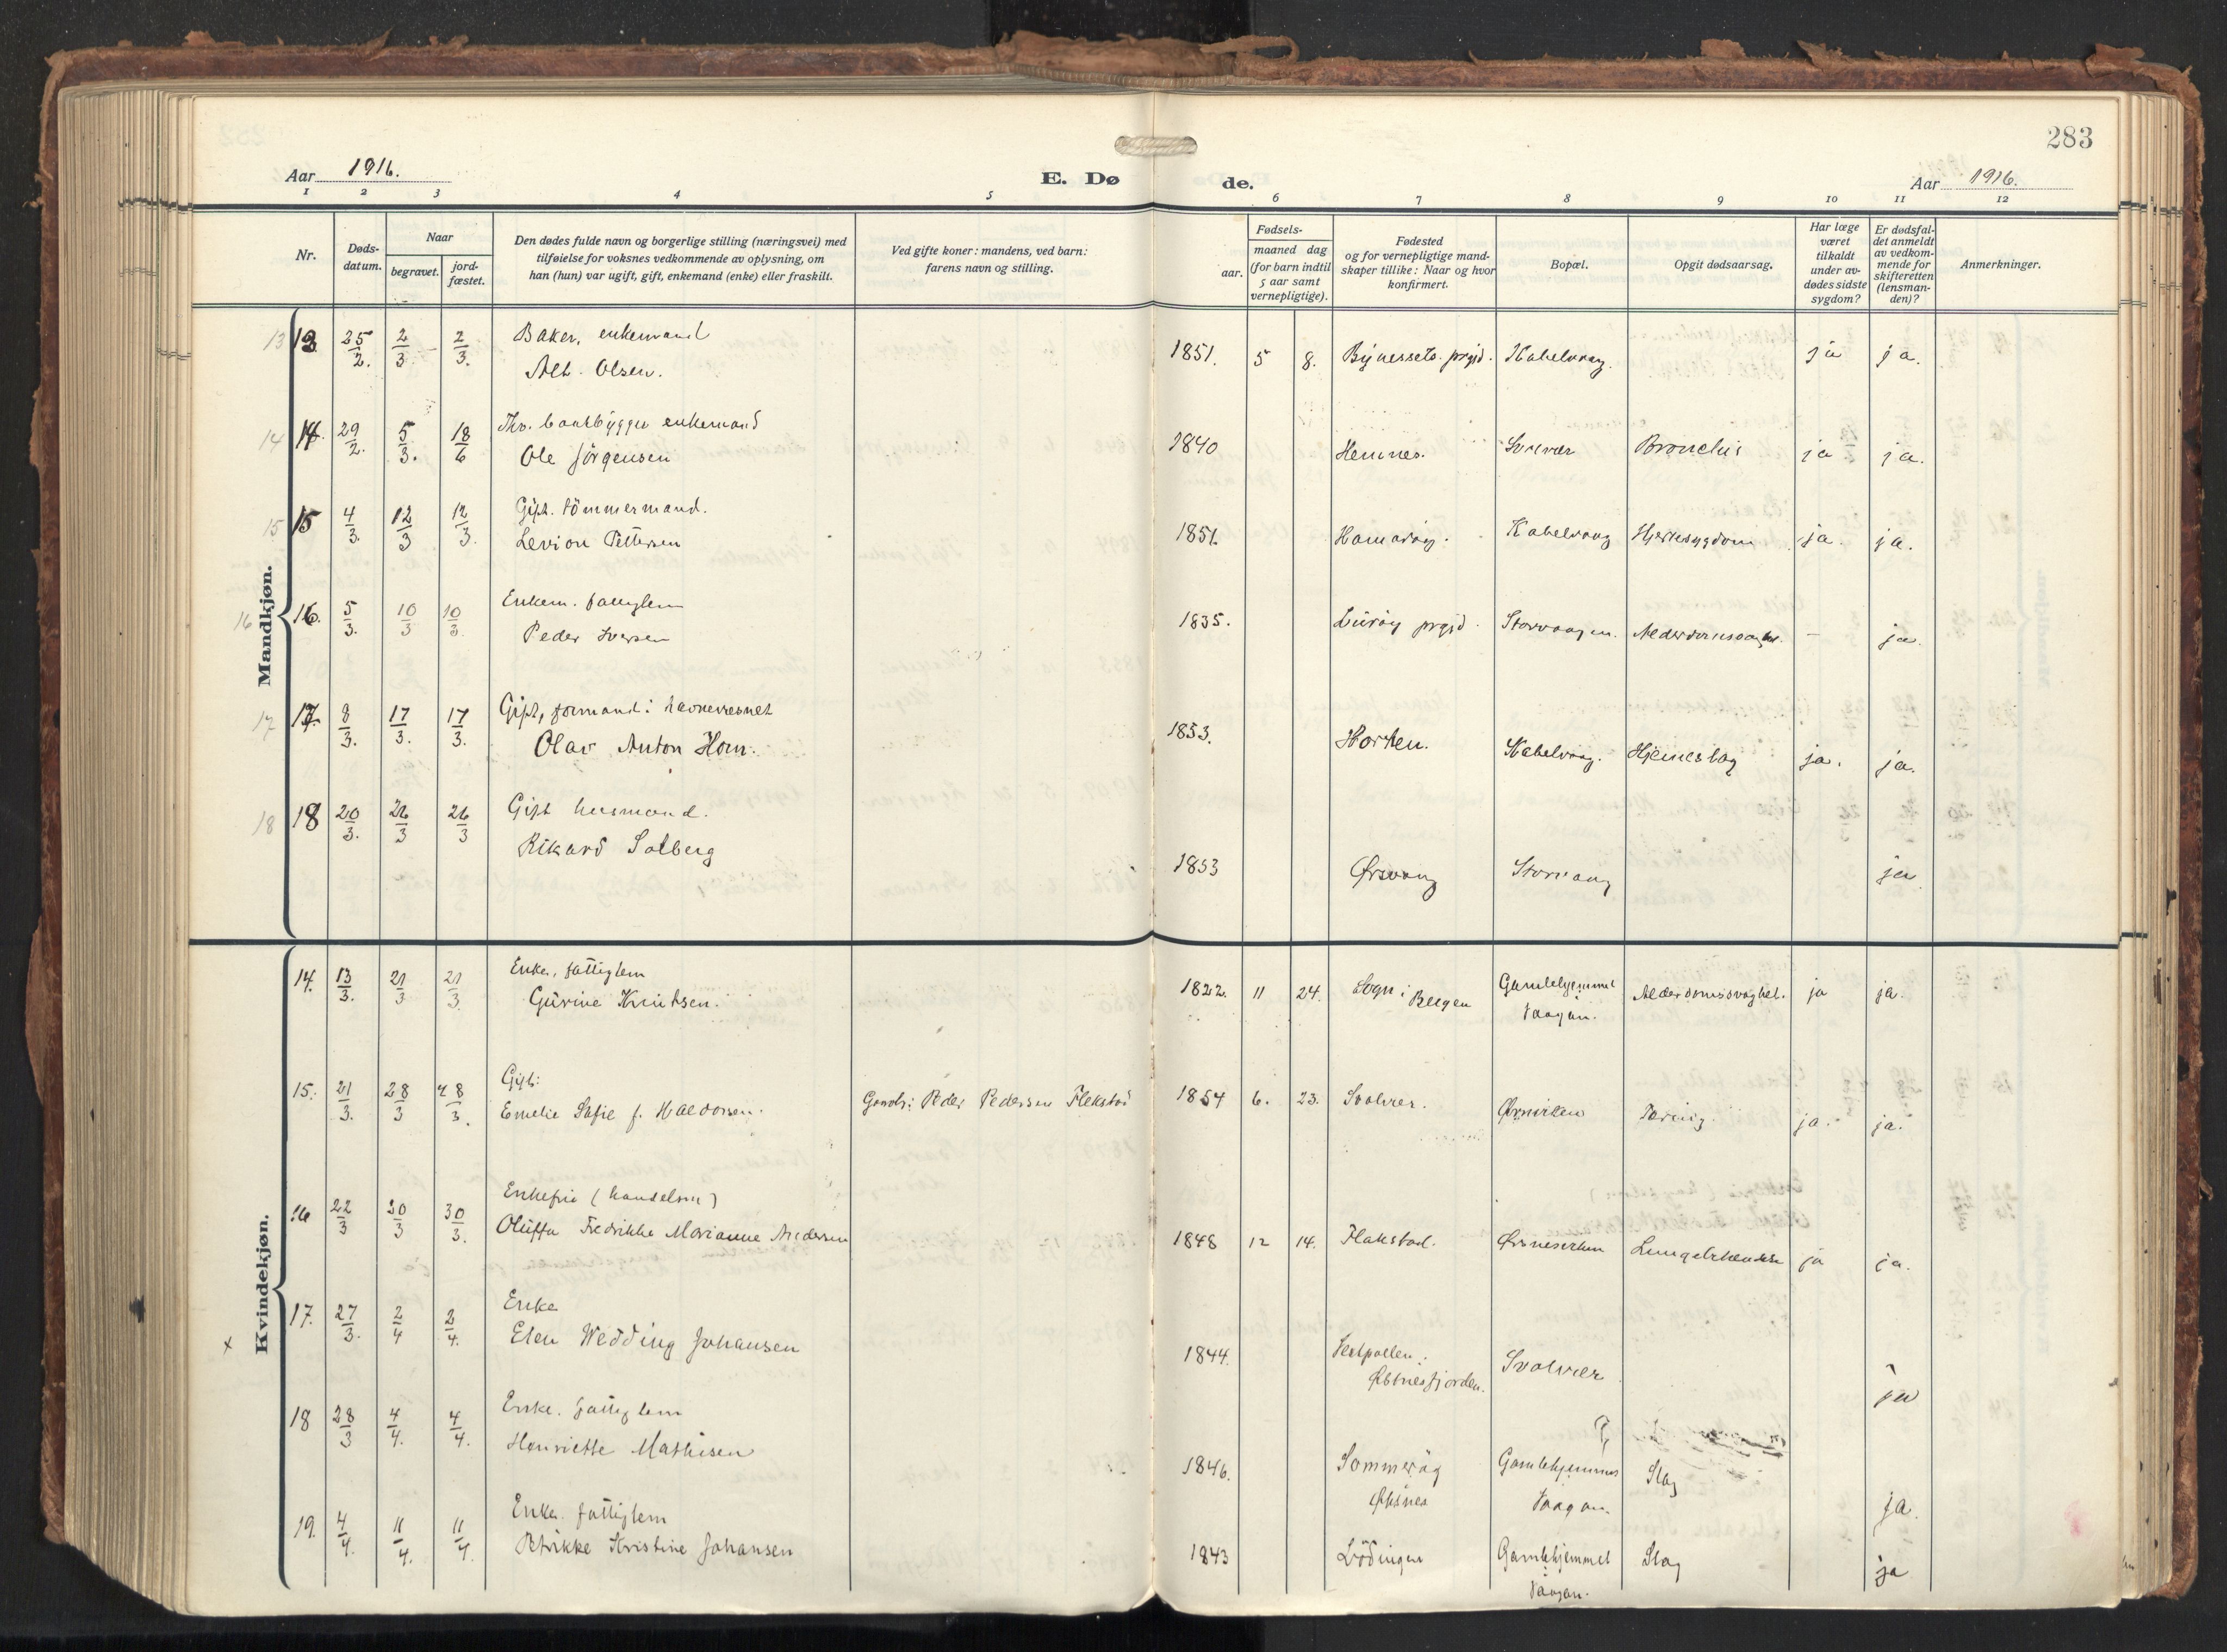 283
Aar 1916.
E. Dø
de.
Aar 1916.
1 2 3 4 5 6 7 8 9 10 11 12
Nr.
Døds-
datum.
Naar
begravet.
jord-
fæstet.
Den dødes fulde navn og borgerlige stilling (næringsvei) med
tilføielse for voksnes vedkommende av oplysning, om
han (hun) var ugift, gift, enkemand (enke) eller fraskilt.
Ved gifte koner: mandens, ved barn:
farens navn og stilling.
Fødsels-
aar.
maaned dag
(for barn indtil
5 aar samt
vernepligtige).
Fødested
og for vernepligtige mand-
skaper tillike: Naar og hvor
konfirmert.
Bopæl.
Opgit dødsaarsag.
Har læge
været
tilkaldt
under av-
dødes sidste
sygdom?
Er dødsfal-
det anmeldt
av vedkom-
mende for
skifteretten
(lensman-
den)?
Anmerkninger.
Mandkjøn.
13 13 25/2. 2/3 2/3. Baker, enkemand
Alb. Olsen.
1851. 5 8. Bynessets prgjd. Kabelvaag. ja ja.
14 14. 29/2. 5/3. 18/6 Fhv. baatbygger enkemand
Ole Jörgensen
1840 Hemnes. Svolvær Bronchit ja ja.
15 15 4/3. 12/3 12/3. Gift. tömmermand.
Levion Pettersen
1851. Hamaröy. Kabelvaag Hjertesygdom ja. ja.
16 16. 5/3. 10/3 10/3. Enkem. fattiglem
Peder Iversen
1835. Luröy prgjd. Storvaagen. Alderdomssvaghet. – ja.
17 17. 8/3. 17/3. 17/3. Gift, formand i havnevæsnet
Olav Anton Horn.
1853. Horten. Kabelvaag. Hjerneslag ja. ja.
18 18 20/3. 26/3 26/3 Gift husmand.
Rikard Solberg
1853 Ørsvaag Storvaag ja.
Kvindekjøn.
14. 13/3. 21/3 21/3 Enke, fattiglem
Gurine Knutsen.
1822. 11 24. Sogn i Bergen Gamlehjemmet
Vaagan. Alderdomssvaghet. ja ja.
15. 21/3. 28/3 28/3. Gift:
Emelie Sofie f. Haldorsen. Gaardb: Peder Pedersen Flekstad
1854 6. 23. Svolvær. Ørnviken Tæring. ja. ja.
16 22/3 30/3 30/3. Enkefru (handelsm)
Oluffa Fredrikke Marianne Andersen
1848 12 14. Flakstad. Ørsnesviken ja ja.
17. 27/3. 2/4 2/4. Enke
Elen Wedding Johansen
1844. Vestpollen
Østnesfjorden. Svolvær ja
x
18 28/3 4/4. 4/4. Enke. fattiglem
Henriette Mathisen
1846. Sommeröy
Øksnes Gamlehjemmet
Vaagan. Slag ja.
19. 4/4. 11/4. 11/4. Enke. fattiglem
Petrikke Kristine Johansen
1843 Lödingen Gamlehjemmet
Vaagan. Slag ja